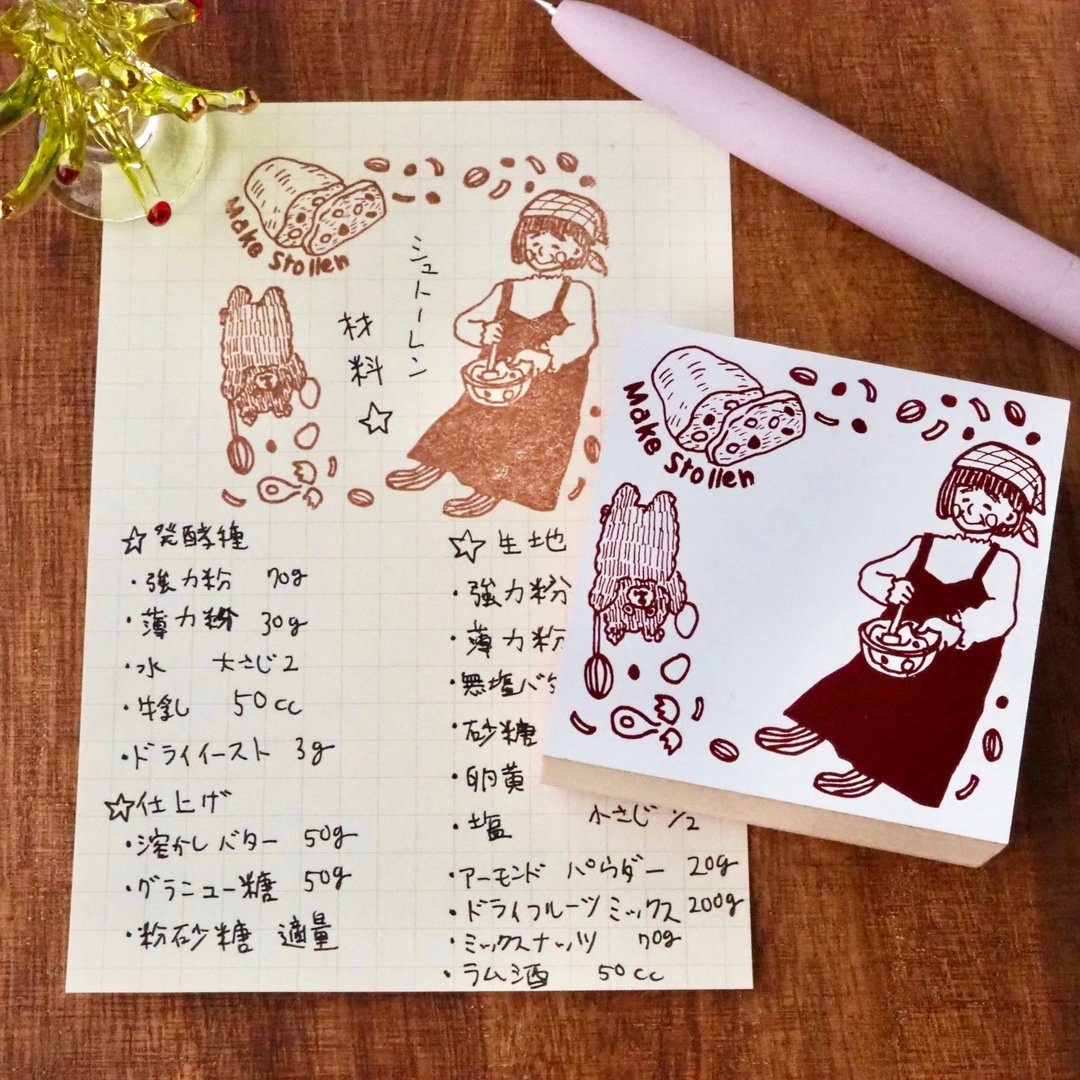 Make Stollen
シュトーレン
材料☆
☆発酵種
・強力粉 70g
・薄力粉 30g
・水 大さじ2
・牛乳 50cc
・ドライイースト 3g
☆仕上げ
・溶かしバター 50g
・グラニュー糖 50g
・粉砂糖 適量
☆生地
・強力粉
・薄力粉
・無塩バタ
・砂糖
・卵黄
・塩 小さじ1/2
・アーモンド パウダー 20g
・ドライフルーツミックス 200g
・ミックスナッツ 70g
・ラム酒 50cc
Make Stollen